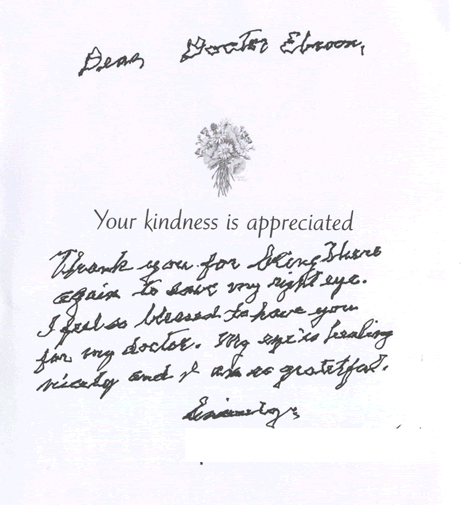 Dear Doctor Ebroon,
Your kindness is appreciated
Thank you for being there
again to save my right eye.
I feel so blessed to have you
for my doctor. My eye is healing
nicely and I am so grateful.
Sincerely,